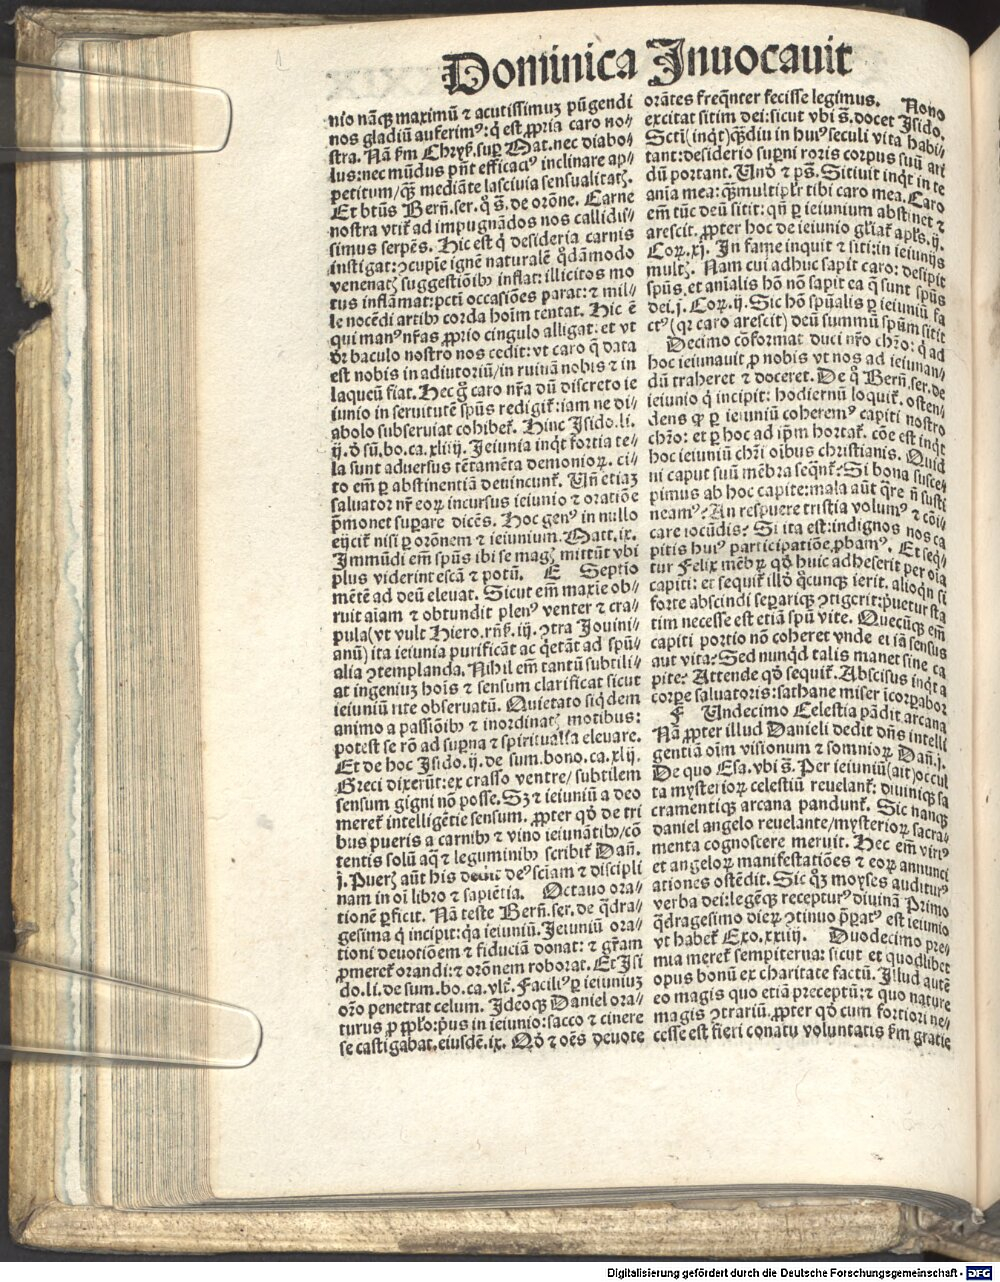 Dominica Inuocauit
nio nãcꝫ maximũ ⁊ acutissimuȝ pũgendi
nos gladiũ auferim⁹: q̇ est ꝓpria caro no⸗
stra. Nã ẜm Chryẜ. suꝑ Mat. nec diabo⸗
lus: nec mũdus pñt efficaci⁹ inclinare ap⸗
petitum/ꝙ̃ mediãte lasciuia sensualitatꝭ.
Et btũs Berñ. ser. q̊ s̃. de orõne. Carne
nostra vtiť ad impugnãdos nos callidis⸗
simus serpẽs. Hic est q̇ desideria carnis
instigat: ꝯcupie ignẽ naturalẽ q̇dãmodo
venenatꝭ suggestiõibꝰ inflat: illicitos mo
tus inflãmat: pcti occasiões parat: ⁊ mil⸗
le nocẽdi artibꝰ corda hoĩm tentat. Hic ẽ
qui man⁹ nr̃as ꝓprio cingulo alligat: et vt
dr̃ baculo nostro nos cedit: vt caro q̃ data
est nobis in adiutoriũ/in ruinã nobis ⁊ in
laqueũ fiat. Hec g̊ caro nr̃a dũ discreto ie
iunio in seruitutẽ spũs redigiť: iam ne di⸗
abolo subseruiat cohibeť. Hinc Isido. li.
ij. ď sũ. bo. ca. xliiij. Ieiunia inq̇t fortia te⸗
la sunt aduersus tẽtamẽta demonioꝝ. ci⸗
to em̃ ꝑ abstinentiã deuincunť. Uñ etiaȝ
saluator nr̃ eoꝝ incursus ieiunio ⁊ oratiõe
p̃monet suꝑare dicẽs. Hoc gen⁹ in nullo
eijciť nisi ꝑ orõnem ⁊ ieiunium. Matt. ix.
Immũdi em̃ spũs ibi se magꝭ mittũt vbi
plus viderint escã ⁊ potũ. E Septio
mẽtẽ ad deũ eleuat. Sicut em̃ maxie ob⸗
ruit aĩam ⁊ obtundit plen⁹ venter ⁊ cra⸗
pula(vt vult Hiero. rñẜ. iij. ꝯtra Iouini⸗
anũ) ita ieiunia purificãt ac q̇etãt ad spũ⸗
alia ꝯtemplanda. Nihil em̃ tantũ subtili⸗
at ingeniuȝ hoĩs ⁊ sensum clarificat sicut
ieiuniũ rite obseruatũ. Quietato siq̇dem
animo a passiõibꝰ ⁊ inordinatꝭ motibus:
potest se rõ ad suꝑna ⁊ spiritualia eleuare.
Et de hoc Isido. ij. de sum. bono. ca. xlij.
Greci dixerũt: ex crasso ventre/ subtilem
sensum gigni nõ posse. Sȝ ⁊ ieiuniũ a deo
mereť intelligẽtie sensum. ꝓpter qd̓ de tri
bus pueris a carnibꝰ ⁊ vino ieiunãtibꝰ/cõ
tentis solũ aq̃ ⁊ leguminibꝰ scribiť Dañ.
j. Puerꝭ aũt his dedit de⁹ sciam ⁊ discipli
nam in oĩ libro ⁊ sapiẽtia. Octauo ora⸗
tionẽ ꝑficit. Nã teste Berñ. ser. de q̃dra⸗
gesima q̇ incipit: q̇a ieiuniũ. Ieiuniũ ora⸗
tioni deuotiõem ⁊ fiduciã donat: ⁊ gr̃am
ꝓmereť orandi: ⁊ orõnem roborat. Et Isi
do. li. de sum. bo. ca. vlť. Facili⁹ ꝑ ieiuniuȝ
or̃o penetrat celum. Ideoqꝫ Daniel ora⸗
turus ꝓ pplo: pus in ieiunio: sacco ⁊ cinere
se castigabat. eiusdẽ. ix. Qd̓ ⁊ oẽs deuote
orãtes freq̃nter fecisse legimus. Nono
excitat sitim dei: sicut vbi s̃. docet Isido.
Scti(inq̇t)q̃diu in hui⁹ seculi vita habi⸗
tant: desiderio suꝑni roris corpus suũ ari
dũ portant. Unď ⁊ ps̃. Sitiuit inq̇t in te
aĩa mea: q̃multiplr̃ tibi caro mea. Caro
em̃ tũc deũ sitit: qñ ꝑ ieiunium abstinet ⁊
arescit. ꝓpter hoc de ieiunio gl̃iať apl̃s. ij.
Coꝝ. xj. In fame inquit ⁊ siti: in ieiunijs
multꝭ. Nam cui adhuc sapit caro: desipit
spũs. et anĩalis hõ nõ sapit ea q̃ sunt spũs
dei. j. Coꝝ. ij. Sic hõ spũalis ꝑ ieiuniũ fa
ct⁹(qꝛ caro arescit) deũ summũ spũm sitit
Decimo cõformat duci nr̃o chr̃o: q̇ ad
hoc ieiunauit ꝓ nobis vt nos ad ieiunan⸗
dũ traheret ⁊ doceret. De q̊ Berñ. ser. de
ieiunio q̇ incipit: hodiernũ loquiť. osten⸗
dens ꝙ ꝑ ieiuniũ coherem⁹ capiti nostro
chr̃o: et ꝑ hoc ad ip̃m hortať. cõe est inq̇t
hoc ieiuniũ chr̃i oĩbus christianis. Quid
ni caput suũ mẽbra seq̃nť? Si bona susce⸗
pimus ab hoc capite: mala aũt q̃re ñ susti
neam⁹? An respuere tristia volum⁹ ⁊ cõĩ⸗
care iocũdis? Si ita est: indignos nos ca
pitis hui⁹ participatiõe ꝓbam⁹. Et seq̇⸗
tur Felix mẽbꝝ qd̓ huic adheserit per oĩa
capiti: et sequiť illd̓ q̊cunqꝫ ierit. alioq̇n si
forte abscindi separiqꝫ ꝯtigerit: p̃uetur sta
tim necesse est etiã spũ vite. Quecũqꝫ em̃
capiti portio nõ coheret vnde ei iã sensus
aut vita? Sed nunq̇d talis manet sine ca
pite? Attende qd̓ sequiť. Abscisus inq̇t a
corꝑe saluatoris: sathane miser ĩcorꝑabor
F Undecimo Celestia pãdit arcana
Nã ꝓpter illud Danieli dedit dñs intelli
gentiã oĩm visionum ⁊ somnioꝝ Dañ. j.
De quo Esa. vbi s̃. Per ieiuniũ(ait)occul
ta mysterioꝝ celestiũ reuelanť: diuiniqꝫ sa
cramentiqꝫ arcana pandunť. Sic nanqꝫ
daniel angelo reuelante/mysterioꝝ sacra⸗
menta cognoscere meruit. Hec em̃ virt⁹
et angeloꝝ manifestatiões ⁊ eoꝝ annunci
ationes ostẽdit. Sic q̊ȝ moyses auditur⁹
verba dei: legẽqꝫ receptur⁹ diuinã Primo
q̃dragesimo dieꝝ ꝯtinuo p̃ꝑat⁹ est ieiunio
vt habeť Exo. xxiiij. Duodecimo pre⸗
mia mereť sempiterna: sicut et quodlibet
opus bonũ ex charitate factũ. Illud autẽ
eo magis quo etiã preceptũ: ⁊ quo nature
magis ꝯtrariũ. ꝓpter qd̓ cum fortiori ne⸗
cesse est fieri conatu voluntatis ẜm gratie
Digitalisierung gefördert durch die Deutsche Forschungsgemeinschaft - DFG